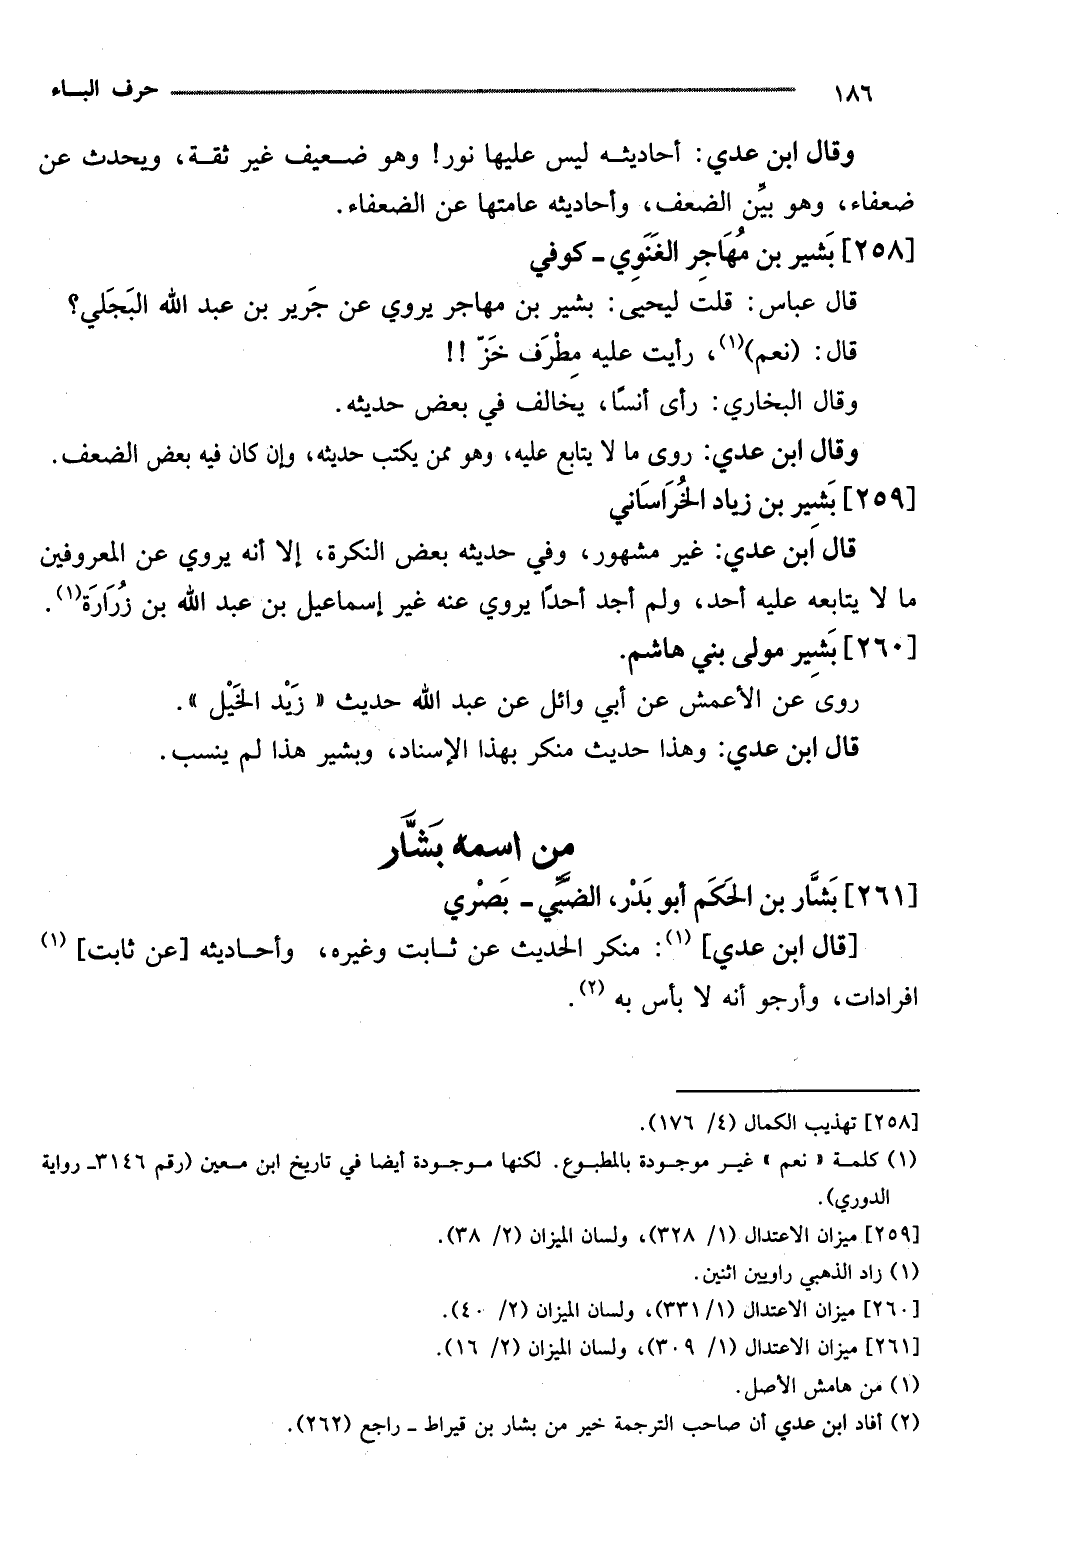 ١٨٦ حرف البـــاء
وقال ابن عدي: أحاديثـه ليس عليها نور! وهو ضـعيف غير ثقـة، ويحدث عن
ضعفاء، وهو بيِّن الضعف، وأحاديثه عامتها عن الضعفاء.
[٢٥٨] بَشِير بن مُهَاجِر الغَنَوِي ـ كوفي
قال عباس: قلت ليحيى: بشير بن مهاجر يروي عن جَرير بن عبد الله البَجَلي؟
قال: (نعم)(١)، رأيت عليه مِطْرَف خَزّ !!
وقال البخاري: رأى أنسًا، يخالف في بعض حديثه.
وقال ابن عدي: روى ما لا يتابع عليه، وهو ممن يكتب حديثه، وإن كان فيه بعض الضعف.
[٢٥٩] بَشِير بن زياد الخُرَاسَاني
قال ابن عدي: غير مشهور، وفي حديثه بعض النكرة، إلا أنه يروي عن المعروفين
ما لا يتابعه عليه أحد، ولم أجد أحدًا يروي عنه غير إسماعيل بن عبد الله بن زُرَارَة(١).
[٢٦٠] بَشِير مولى بني هاشم.
روى عن الأعمش عن أبي وائل عن عبد الله حديث « زَيْد الخَيْل ».
قال ابن عدي: وهذا حديث منكر بهذا الإسناد، وبشير هذا لم ينسب.
من اسمه بَشَّار
[٢٦١] بَشَّار بن الحَكَم أبو بَدْر، الضبِّي ـ بَصْري
[قال ابن عدي] (١): منكر الحديث عن ثـابت وغيره، وأحـاديثه [عن ثابت] (١)
افرادات، وأرجو أنه لا بأس به (٢).
[٢٥٨] تهذيب الكمال (٤/ ١٧٦).
(١) كلمـة « نعم » غيـر موجـودة بالمطبوع. لكنها مـوجـودة أيضا في تاريخ ابن مـعين (رقم ٣١٤٦ـ رواية
الدوري).
[٢٥٩] ميزان الاعتدال (١/ ٣٢٨)، ولسان الميزان (٢/ ٣٨).
(١) زاد الذهبي راويين اثنين.
[٢٦٠] ميزان الاعتدال (١/ ٣٣١)، ولسان الميزان (٢/ ٤٠).
[٢٦١] ميزان الاعتدال (١/ ٣٠٩)، ولسان الميزان (٢/ ١٦).
(١) من هامش الأصل.
(٢) أفاد ابن عدي أن صاحب الترجمة خير من بشار بن قيراط ـ راجع (٢٦٢).